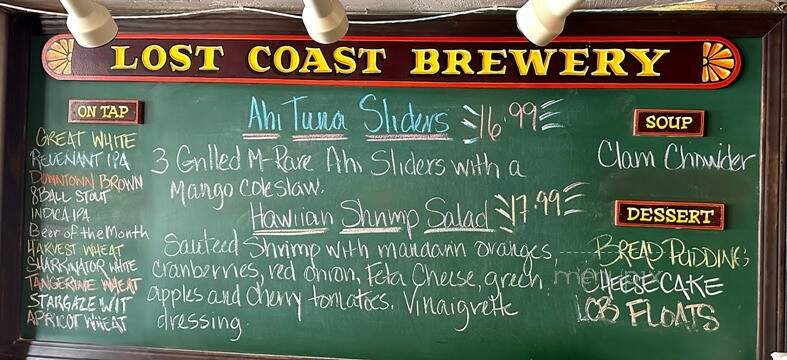 LOST COAST BREWERY
ON TAP
GREAT WHITE
REVENANT IPA
DOWNTOWN BROWN
8 BALL STOUT
INDICA IPA
Beer of the Month
HARVEST WHEAT
SHARKINATOR WHITE
TANGERINE WHEAT
STARGAZE WIT
APRICOT WHEAT
Ahi Tuna Sliders 16.99
3 Grilled M-Rare Ahi Sliders with a
Mango coleslaw.
Hawiian Shrimp Salad 17.99
Sauteed Shrimp with mandarin oranges,
cranberries, red onion, Feta Cheese, green
apples and cherry tomatoes. Vinaigrette
dressing.
SOUP
Clam Chowder
DESSERT
BREAD PUDDING
CHEESECAKE
LCB FLOATS